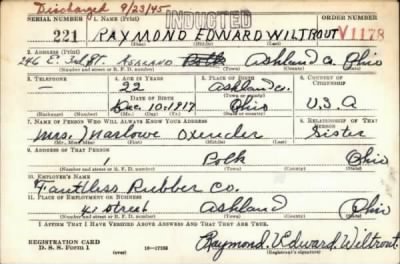 Discharged 9/23/45
INDUCTED
SERIAL NUMBER 1. NAME (Print) ORDER NUMBER
221 RAYMOND EDWARD WILTROUT V1178
(First) (Middle) (Last)
2. ADDRESS (Print)
246 E. 3rd St. ASHLAND Polk Ashland Co. Ohio
(Number and street or R. F. D. number) (Town) (County) (State)
3. TELEPHONE 4. AGE IN YEARS 5. PLACE OF BIRTH 6. COUNTRY OF CITIZENSHIP
— 22 Ashland Co.
DATE OF BIRTH
Dec. 10. 1917 Ohio U.S.A
(Exchange) (Number) (Mo.) (Day) (Yr.) (State or country)
7. NAME OF PERSON WHO WILL ALWAYS KNOW YOUR ADDRESS 8. RELATIONSHIP OF THAT PERSON
Mrs. Marlowe Oxender Sister
(Mr., Mrs., Miss) (First) (Middle) (Last)
9. ADDRESS OF THAT PERSON
Polk Ohio
(Number and street or R. F. D. number) (Town) (County) (State)
10. EMPLOYER'S NAME
Faultless Rubber Co.
11. PLACE OF EMPLOYMENT OR BUSINESS
street Ashland Ohio
(Number and street or R. F. D. number) (Town) (County) (State)
I AFFIRM THAT I HAVE VERIFIED ABOVE ANSWERS AND THAT THEY ARE TRUE.
REGISTRATION CARD
D. S. S. Form 1 (over) Raymond Edward Wiltrout
(Registrant's signature)